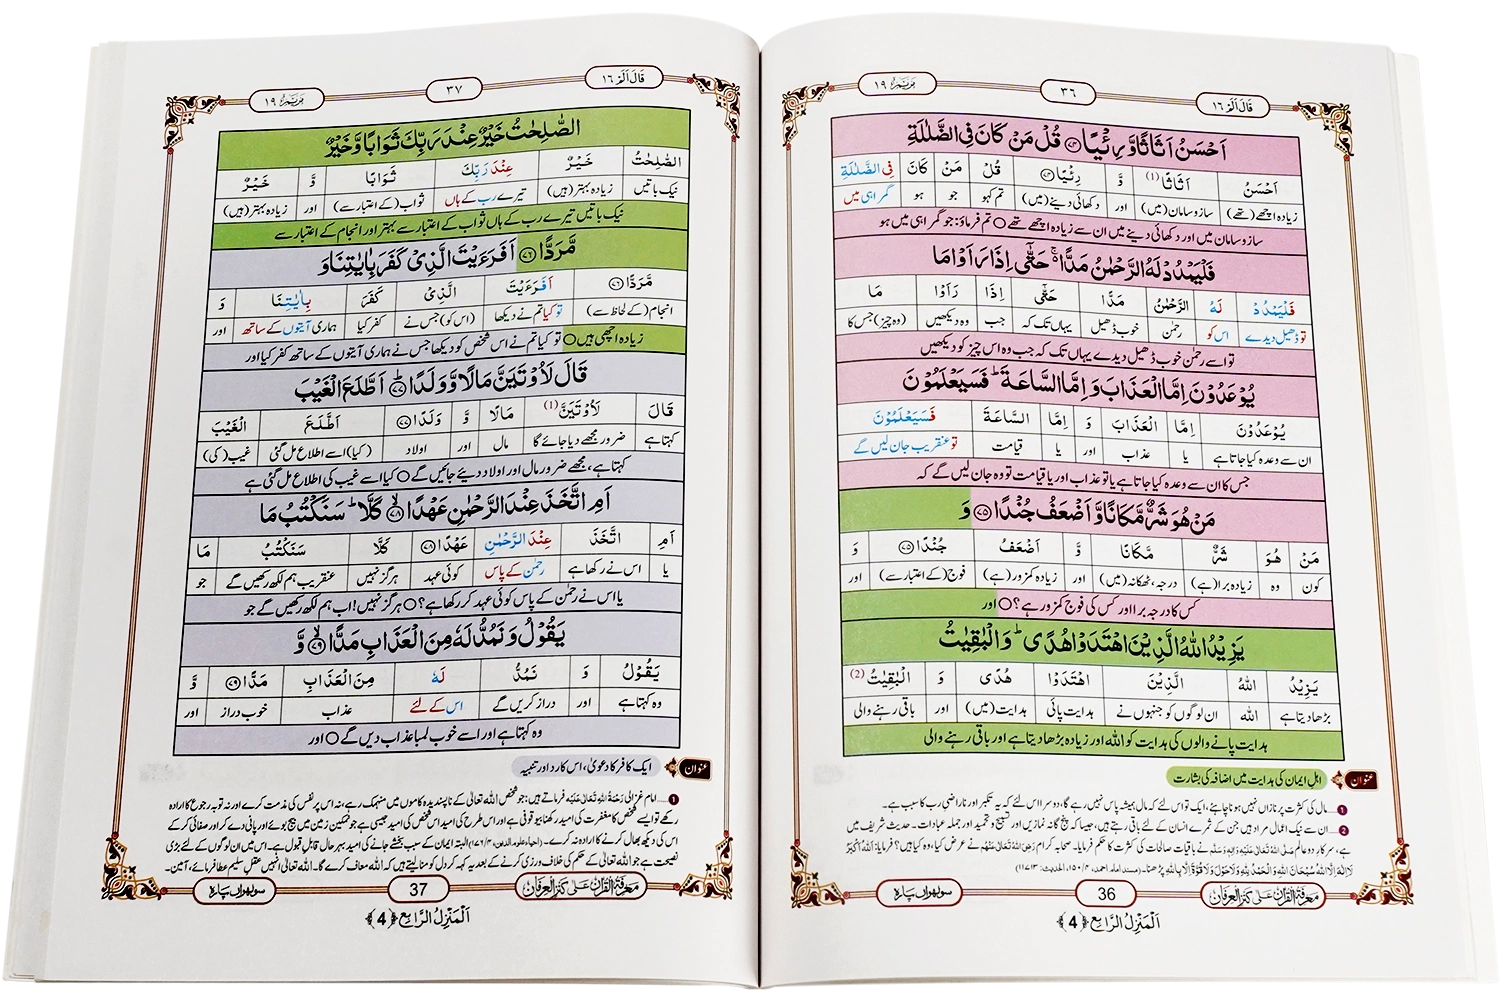 مریم ۱۹
۳۶
قَالَ اَلَمْ ۱۶
اَحْسَنُ اَثَاثًا وَّرِئْیًا ﴿۷۴﴾ قُلْ مَنْ كَانَ فِی الضَّلٰلَةِ
اَحْسَنُ اَثَاثًا (1) وَّ رِئْیًا ﴿۷۴﴾ قُلْ مَنْ كَانَ فِی الضَّلٰلَةِ
زیادہ اچھے (تھے) سازوسامان (میں) اور دکھائی دینے (میں) تم کہو جو ہو گمراہی میں
سازوسامان میں اور دکھائی دینے میں ان سے زیادہ اچھے تھے ○ تم فرماؤ: جو گمراہی میں ہو
فَلْیَمْدُدْ لَهُ الرَّحْمٰنُ مَدًّا ۚ۬ حَتّٰۤی اِذَا رَاَوْا مَا
فَلْیَمْدُدْ لَهُ الرَّحْمٰنُ مَدًّا حَتّٰۤی اِذَا رَاَوْا مَا
تو ڈھیل دیدے اس کو رحمٰن خوب ڈھیل یہاں تک کہ جب وہ دیکھیں (وہ چیز) جس کا
تو اسے رحمٰن خوب ڈھیل دیدے یہاں تک کہ جب وہ اس چیز کو دیکھیں
یُوْعَدُوْنَ اِمَّا الْعَذَابَ وَ اِمَّا السَّاعَةَ ؕ فَسَیَعْلَمُوْنَ
یُوْعَدُوْنَ اِمَّا الْعَذَابَ وَ اِمَّا السَّاعَةَ فَسَیَعْلَمُوْنَ
ان سے وعدہ کیا جاتا ہے یا عذاب اور یا قیامت تو عنقریب جان لیں گے
جس کا ان سے وعدہ کیا جاتا ہے یا تو عذاب اور یا قیامت تو وہ جان لیں گے کہ
مَنْ هُوَ شَرٌّ مَّكَانًا وَّ اَضْعَفُ جُنْدًا ﴿۷۵﴾ وَ
مَنْ هُوَ شَرٌّ مَّكَانًا وَّ اَضْعَفُ جُنْدًا ﴿۷۵﴾ وَ
کون وہ زیادہ برا (ہے) درجہ، ٹھکانہ (میں) اور زیادہ کمزور (ہے) فوج (کے اعتبار سے) اور
کس کا درجہ برا اور کس کی فوج کمزور ہے؟ ○ اور
یَزِیْدُ اللّٰهُ الَّذِیْنَ اهْتَدَوْا هُدًی ؕ وَ الْبٰقِیٰتُ
یَزِیْدُ اللّٰهُ الَّذِیْنَ اهْتَدَوْا هُدًی وَ الْبٰقِیٰتُ (2)
بڑھا دیتا ہے اللہ ان لوگوں کو جنہوں نے ہدایت پائی ہدایت (میں) اور باقی رہنے والی
ہدایت پانے والوں کی ہدایت کو اللہ اور زیادہ بڑھا دیتا ہے اور باقی رہنے والی
عنوان اہلِ ایمان کی ہدایت میں اضافہ کی بشارت
1 ..... مال کی کثرت پر نازاں نہیں ہونا چاہئے، ایک تو اس لئے کہ مال ہمیشہ پاس نہیں رہے گا، دوسرا اس لئے کہ یہ تکبر اور ناراضی رب کا سبب ہے۔
2 ..... ان سے نیک اعمال مراد ہیں جن کے ثمرے انسان کے لئے باقی رہتے ہیں، جیسا کہ پنج گانہ نمازیں اور تسبیح و تحمید اور جملہ عبادات۔ حدیث شریف میں
ہے، سرکار دو عالم صَلَّی اللہُ تَعَالٰی عَلَیْہِ وَاٰلِہٖ وَسَلَّم نے باقیات صالحات کی کثرت کا حکم فرمایا۔ صحابہ کرام رَضِیَ اللہُ تَعَالٰی عَنْہُم نے عرض کیا: وہ کیا ہیں؟ فرمایا: اَللّٰهُ اَكْبَرُ
لَا اِلٰهَ اِلَّا اللّٰهُ سُبْحَانَ اللّٰهِ وَ الْحَمْدُ لِلّٰهِ وَلَا حَوْلَ وَلَا قُوَّةَ اِلَّا بِاللّٰهِ پڑھنا۔ (مسند امام احمد، ۴/۱۵۰، الحدیث: ۱۱۷۱۳)
معرفۃ القرآن علی کنز العرفان
36
سولہواں پارہ
اَلْمَنْزِلُ الرَّابِع ﴿4﴾
مریم ۱۹
۳۷
قَالَ اَلَمْ ۱۶
الصّٰلِحٰتُ خَیْرٌ عِنْدَ رَبِّكَ ثَوَابًا وَّ خَیْرٌ
الصّٰلِحٰتُ خَیْرٌ عِنْدَ رَبِّكَ ثَوَابًا وَّ خَیْرٌ
نیک باتیں زیادہ بہتر (ہیں) تیرے رب کے ہاں ثواب (کے اعتبار سے) اور زیادہ بہتر (ہیں)
نیک باتیں تیرے رب کے ہاں ثواب کے اعتبار سے بہتر اور انجام کے اعتبار سے
مَّرَدًّا ﴿۷۶﴾ اَفَرَءَیْتَ الَّذِیْ كَفَرَ بِاٰیٰتِنَا وَ
مَّرَدًّا ﴿۷۶﴾ اَفَرَءَیْتَ الَّذِیْ كَفَرَ بِاٰیٰتِنَا وَ
انجام (کے لحاظ سے) تو کیا تم نے دیکھا (اس کو) جس نے کفر کیا ہماری آیتوں کے ساتھ اور
زیادہ اچھی ہیں ○ تو کیا تم نے اس شخص کو دیکھا جس نے ہماری آیتوں کے ساتھ کفر کیا اور
قَالَ لَاُوْتَیَنَّ مَالًا وَّ وَلَدًا ﴿۷۷﴾ؕ اَطَّلَعَ الْغَیْبَ
قَالَ لَاُوْتَیَنَّ (1) مَالًا وَّ وَلَدًا ﴿۷۷﴾ اَطَّلَعَ الْغَیْبَ
کہتا ہے ضرور مجھے دیا جائے گا مال اور اولاد (کیا) اسے اطلاع مل گئی غیب (کی)
کہتا ہے، مجھے ضرور مال اور اولاد دیئے جائیں گے ○ کیا اسے غیب کی اطلاع مل گئی ہے
اَمِ اتَّخَذَ عِنْدَ الرَّحْمٰنِ عَهْدًا ﴿۷۸﴾ۙ كَلَّا ؕ سَنَكْتُبُ مَا
اَمِ اتَّخَذَ عِنْدَ الرَّحْمٰنِ عَهْدًا ﴿۷۸﴾ كَلَّا سَنَكْتُبُ مَا
یا اس نے رکھا ہے رحمٰن کے پاس کوئی عہد ہرگز نہیں عنقریب ہم لکھ رکھیں گے جو
یا اس نے رحمٰن کے پاس کوئی عہد کر رکھا ہے؟ ○ ہرگز نہیں! اب ہم لکھ رکھیں گے جو
یَقُوْلُ وَ نَمُدُّ لَهٗ مِنَ الْعَذَابِ مَدًّا ﴿۷۹﴾ۙ وَّ
یَقُوْلُ وَ نَمُدُّ لَهٗ مِنَ الْعَذَابِ مَدًّا ﴿۷۹﴾ وَّ
وہ کہتا ہے اور دراز کریں گے اس کے لئے عذاب خوب دراز اور
وہ کہتا ہے اور اسے خوب لمبا عذاب دیں گے ○ اور
عنوان ایک کافر کا دعویٰ، اس کا رد اور تنبیہ
1 ..... امام غزالی رَحْمَۃُ اللہِ تَعَالٰی عَلَیْہِ فرماتے ہیں: جو شخص اللہ تعالیٰ کے ناپسندیدہ کاموں میں منہمک رہے، نہ اس پر نفس کی مذمت کرے اور نہ توبہ و رجوع کا ارادہ
رکھے تو ایسے شخص کا مغفرت کی امید رکھنا بیوقوفی ہے اور اس طرح کی امید اس شخص کی امید جیسی ہے جو نمکین زمین میں بیج بوئے اور پانی دے کر اور صفائی کر کے
اس کی دیکھ بھال کرنے کا ارادہ نہ کرے۔ (احیاء علوم الدین، ۴/۱۷۶) البتہ ایمان کے سبب بخشے جانے کی امید بہرحال قابل قبول ہے۔ اس میں ان لوگوں کے لئے بڑی
نصیحت ہے جو اللہ تعالیٰ کے حکم کی خلاف ورزی کرنے کے بعد یہ کہہ کر دل کو منا لیتے ہیں کہ اللہ معاف کر دے گا۔ اللہ تعالیٰ انہیں عقل سلیم عطا فرمائے، آمین۔
معرفۃ القرآن علی کنز العرفان
37
سولہواں پارہ
اَلْمَنْزِلُ الرَّابِع ﴿4﴾